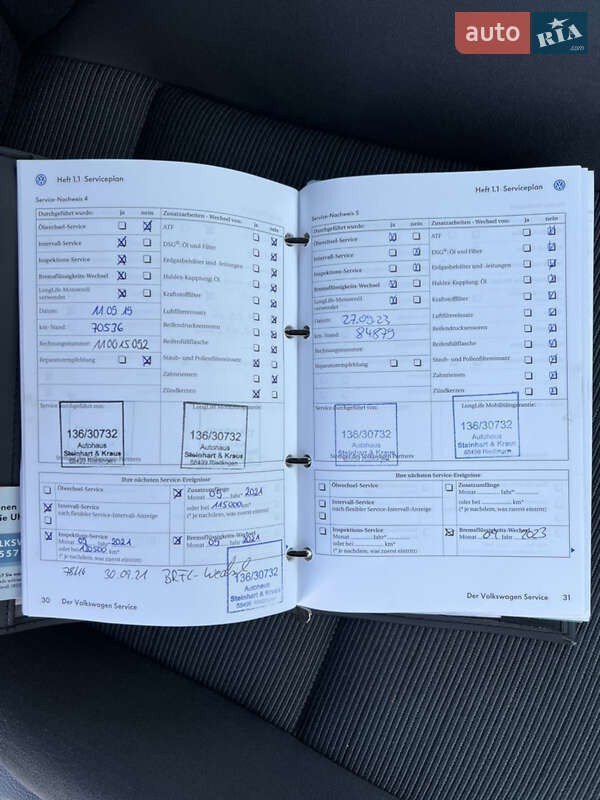 auto RIA .com
Heft 1.1 Serviceplan
Service-Nachweis 4
Durchgeführt wurde: ja nein Zusatzarbeiten - Wechsel von: ja nein
Ölwechsel-Service ATF
Intervall-Service DSG®-Öl und Filter
Inspektions-Service Erdgasbehälter und -leitungen
Bremsflüssigkeits-Wechsel Haldex-Kupplung: Öl
LongLife-Motorenöl verwendet Kraftstofffilter
Datum: 11 09 19 Luftfiltereinsatz
km-Stand: 70576 Reifendrucksensoren
Rechnungsnummer: Reifenfüllflasche
Reparaturempfehlung Staub- und Pollenfiltereinsatz
Zahnriemen
Zündkerzen
Service durchgeführt von: LongLife Mobilitätsgarantie:
136/30732 136/30732
Autohaus Autohaus
Steinhart & Kraus Steinhart & Kraus
88499 Riedlingen
Ihre nächsten Service-Ereignisse
Ölwechsel-Service Zusatzumfänge
Monat 09 Jahr* 2021
Intervall-Service oder bei 115000 km*
nach flexibler Service-Intervall-Anzeige (* je nachdem, was zuerst eintritt)
Inspektions-Service Bremsflüssigkeits-Wechsel
Monat 09 Jahr* 2021 Monat 09 Jahr 2021
oder bei km*
(* je nachdem, was zuerst eintritt)
30.09.21
136/30732
Autohaus
Steinhart & Kraus
30 Der Volkswagen Service
Heft 1.1 Serviceplan
Service-Nachweis 5
Durchgeführt wurde: ja nein Zusatzarbeiten - Wechsel von: ja nein
Ölwechsel-Service ATF
Intervall-Service DSG®-Öl und Filter
Inspektions-Service Erdgasbehälter und -leitungen
Bremsflüssigkeits-Wechsel Haldex-Kupplung: Öl
LongLife-Motorenöl verwendet Kraftstofffilter
Datum: 27.09.23 Luftfiltereinsatz
km-Stand: 84879 Reifendrucksensoren
Rechnungsnummer: Reifenfüllflasche
Reparaturempfehlung Staub- und Pollenfiltereinsatz
Zahnriemen
Zündkerzen
Service durchgeführt von: LongLife Mobilitätsgarantie:
136/30732 136/30732
Autohaus Autohaus
Steinhart & Kraus Steinhart & Kraus
88499 Riedlingen
Ihre nächsten Service-Ereignisse
Ölwechsel-Service Zusatzumfänge
Monat Jahr*
Intervall-Service oder bei km*
nach flexibler Service-Intervall-Anzeige (* je nachdem, was zuerst eintritt)
Inspektions-Service Bremsflüssigkeits-Wechsel
Monat Jahr* Monat 09 Jahr 2023
oder bei km*
(* je nachdem, was zuerst eintritt)
Der Volkswagen Service 31